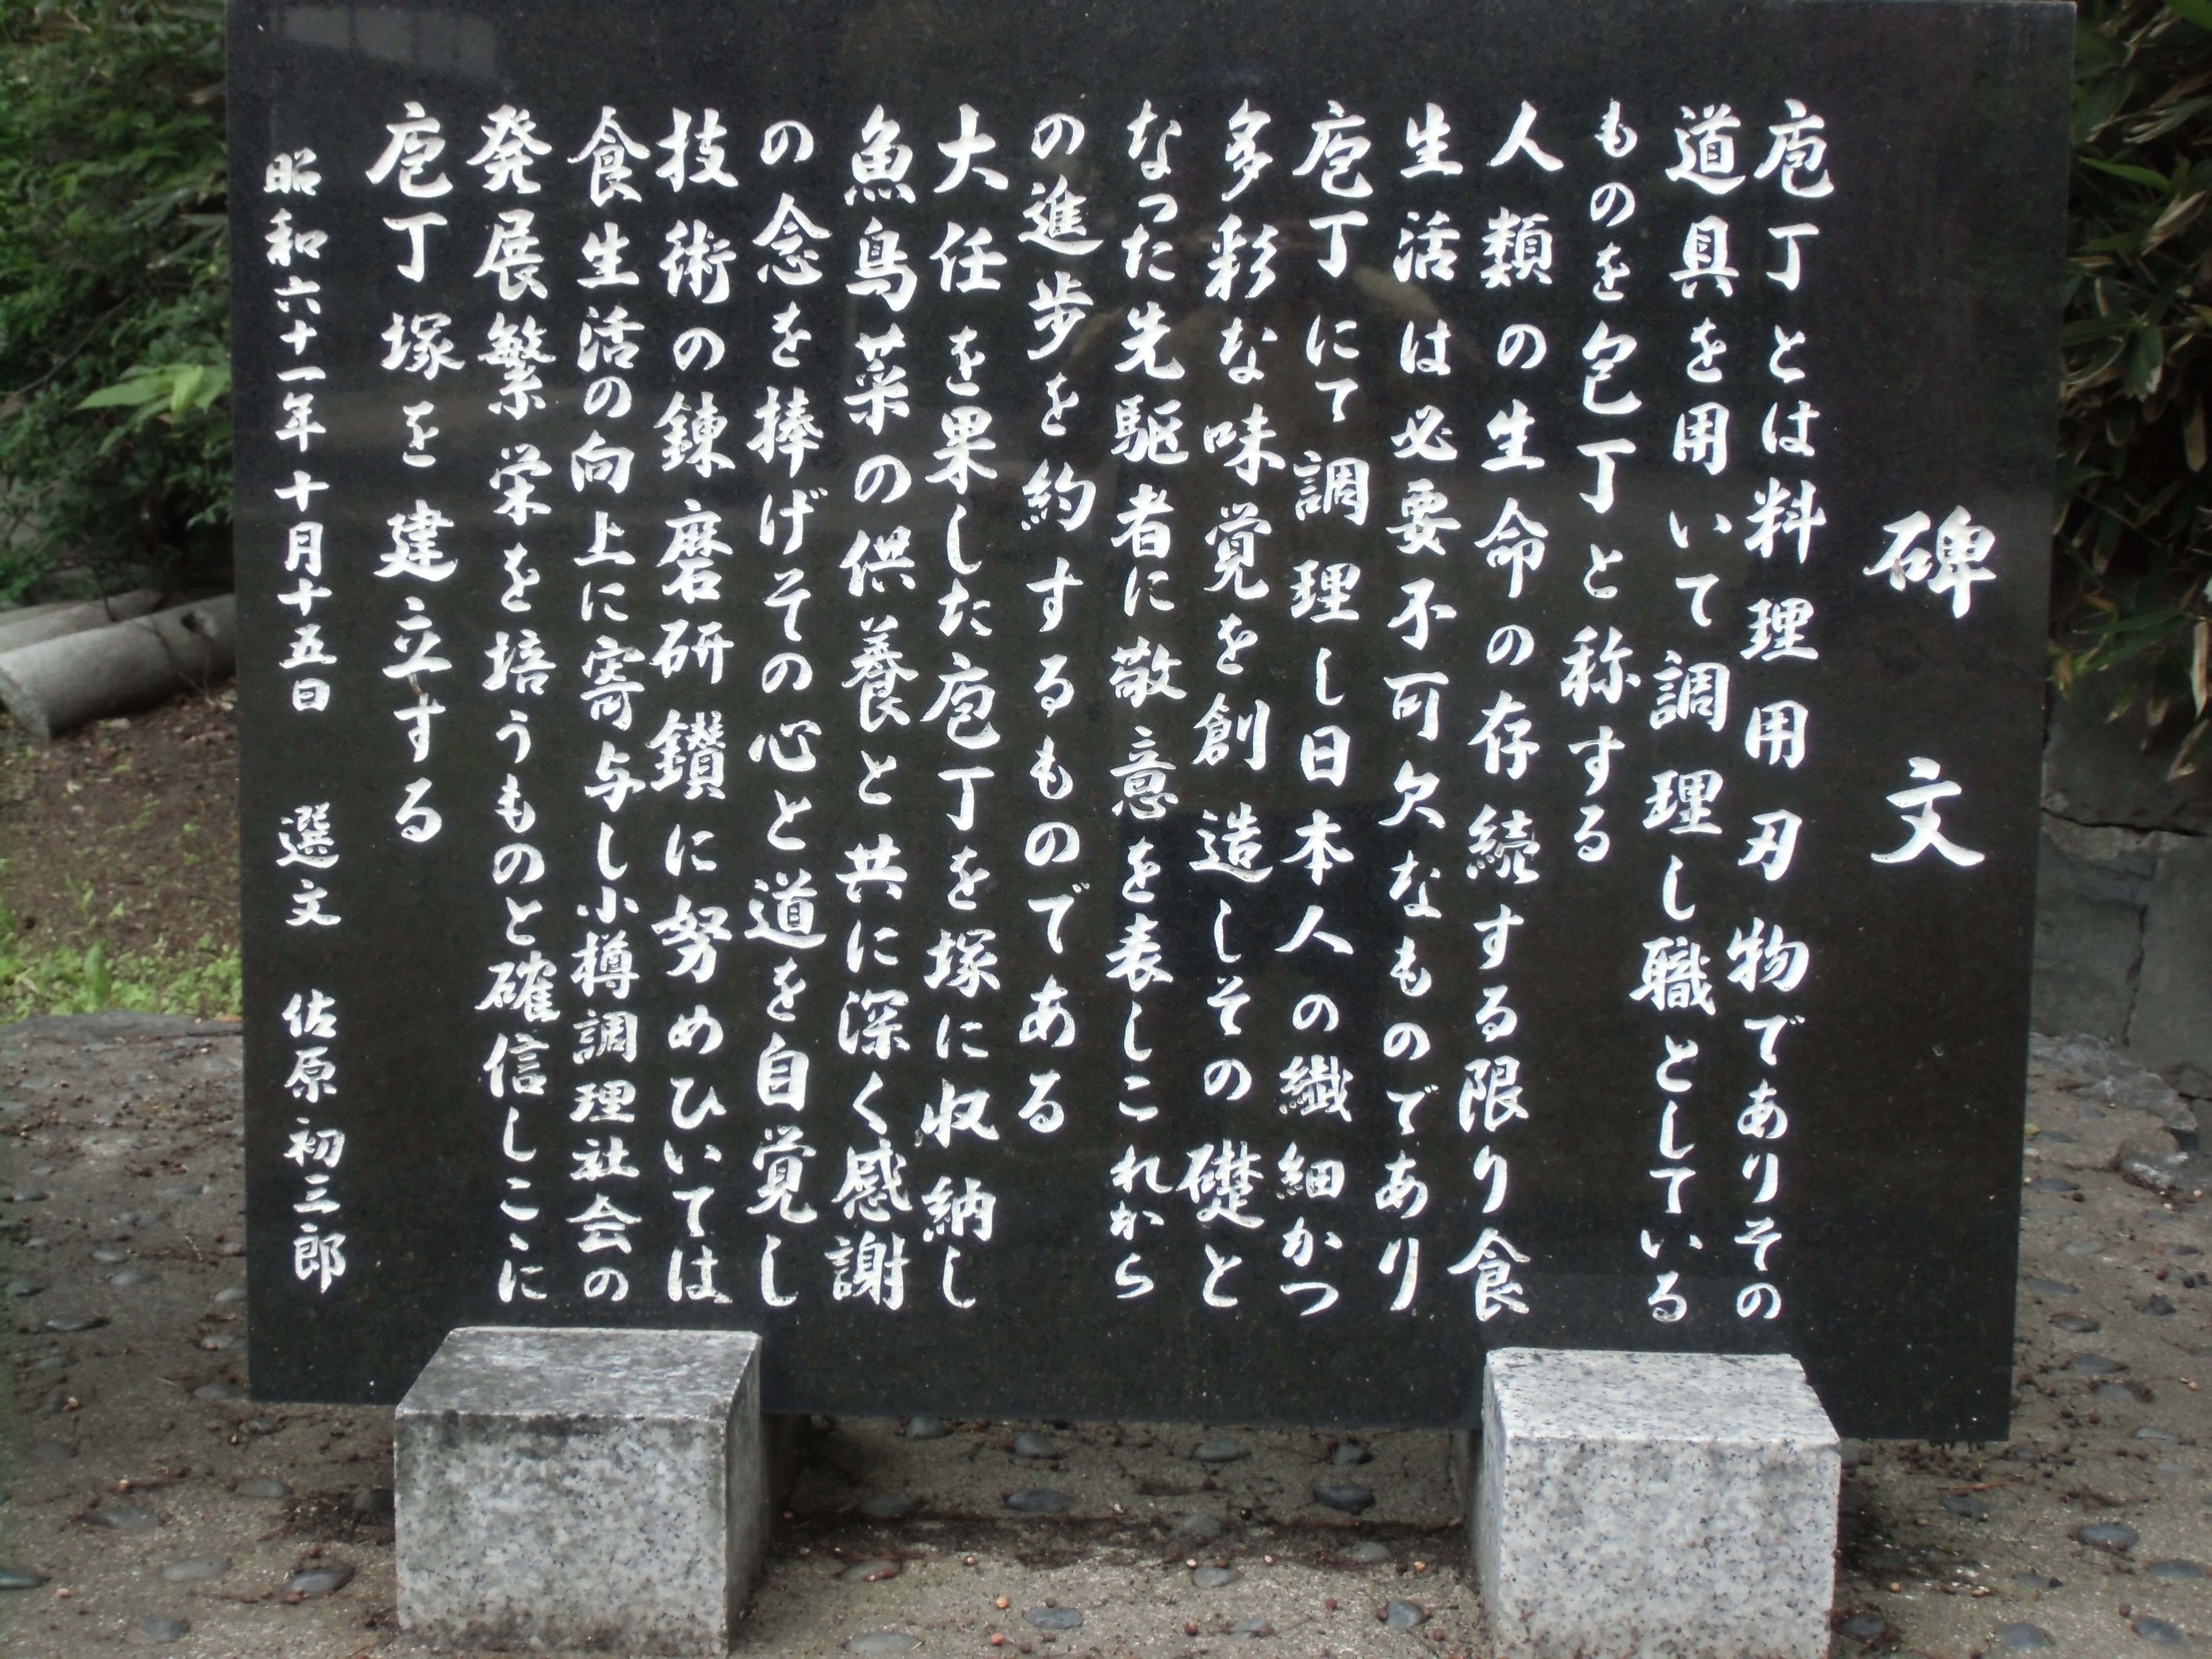 碑文
庖丁とは料理用刃物でありその
道具を用いて調理し職としている
ものを包丁と称する
人類の生命の存続する限り食
生活は必要不可欠なものであり
庖丁にて調理し日本人の繊細かつ
多彩な味覚を創造しその礎と
なった先駆者に敬意を表しこれから
の進歩を約するものである
大任を果した庖丁を塚に収納し
魚鳥菜の供養と共に深く感謝
の念を捧げその心と道を自覚し
技術の錬磨研鑚に努めひいては
食生活の向上に寄与し小樽調理社会の
発展繁栄を培うものと確信しここに
庖丁塚を建立する
昭和六十一年十月十五日 選文 佐原初三郎